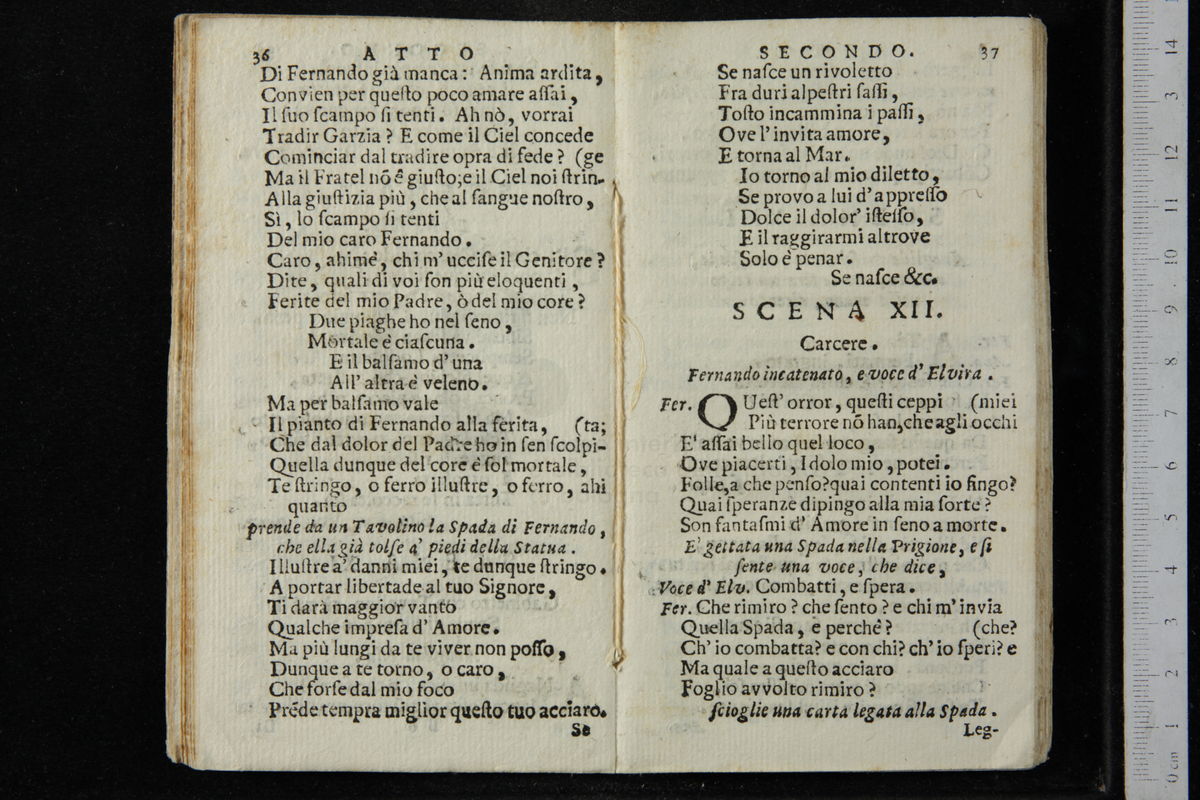 36 ATTO
Di Fernando già manca: Anima ardita,
Convien per queſto poco amare aſſai,
Il ſuo ſcampo ſi tenti. Ah nò, vorrai
Tradir Garzia? E come il Ciel concede
Cominciar dal tradire opra di fede? (ge
Ma il Fratel nõ è giuſto; e il Ciel noi ſtrin-
Alla giuſtizia più, che al ſangue noſtro,
Sì, lo ſcampo ſi tenti
Del mio caro Fernando.
Caro, ahimè, chi m' ucciſe il Genitore?
Dite, quali di voi ſon più eloquenti,
Ferite del mio Padre, ò del mio core?
Due piaghe ho nel ſeno,
Mortale è ciaſcuna.
E il balſamo d' una
All' altra è veleno.
Ma per balſamo vale
Il pianto di Fernando alla ferita, (ta;
Che dal dolor del Padre ho in ſen ſcolpi-
Quella dunque del core è ſol mortale,
Te ſtringo, o ferro illuſtre, o ferro, ahi
quanto
prende da un Tavolino la Spada di Fernando,
che ella già tolſe a' piedi della Statua.
Illuſtre a' danni miei, te dunque ſtringo.
A portar libertade al tuo Signore,
Ti darà maggior vanto
Qualche impreſa d' Amore.
Ma più lungi da te viver non poſſo,
Dunque a te torno, o caro,
Che forſe dal mio foco
Prẽde tempra miglior queſto tuo acciaro.
Se
SECONDO. 37
Se naſce un rivoletto
Fra duri alpeſtri ſaſſi,
Toſto incammina i paſſi,
Ove l' invita amore,
E torna al Mar.
Io torno al mio diletto,
Se provo a lui d' appreſſo
Dolce il dolor' iſteſſo,
E il raggirarmi altrove
Solo è penar.
Se naſce &c.
SCENA XII.
Carcere.
Fernando incatenato, e voce d' Elvira.
Fer. QUeſt' orror, queſti ceppi (miei
Più terrore nõ han, che agli occhi
E' aſſai bello quel loco,
Ove piacerti, Idolo mio, potei.
Folle, a che penſo? quai contenti io fingo?
Quai ſperanze dipingo alla mia ſorte?
Son fantaſmi d' Amore in ſeno a morte.
E' gettata una Spada nella Prigione, e ſi
ſente una voce, che dice,
Voce d' Elv. Combatti, e ſpera.
Fer. Che rimiro? che ſento? e chi m' invia
Quella Spada, e perchè? (che?
Ch' io combatta? e con chi? ch' io ſperi? e
Ma quale a queſto acciaro
Foglio avvolto rimiro?
ſcioglie una carta legata alla Spada.
Leg-
14
13
12
11
10
9
8
7
6
5
4
3
2
1
0 cm